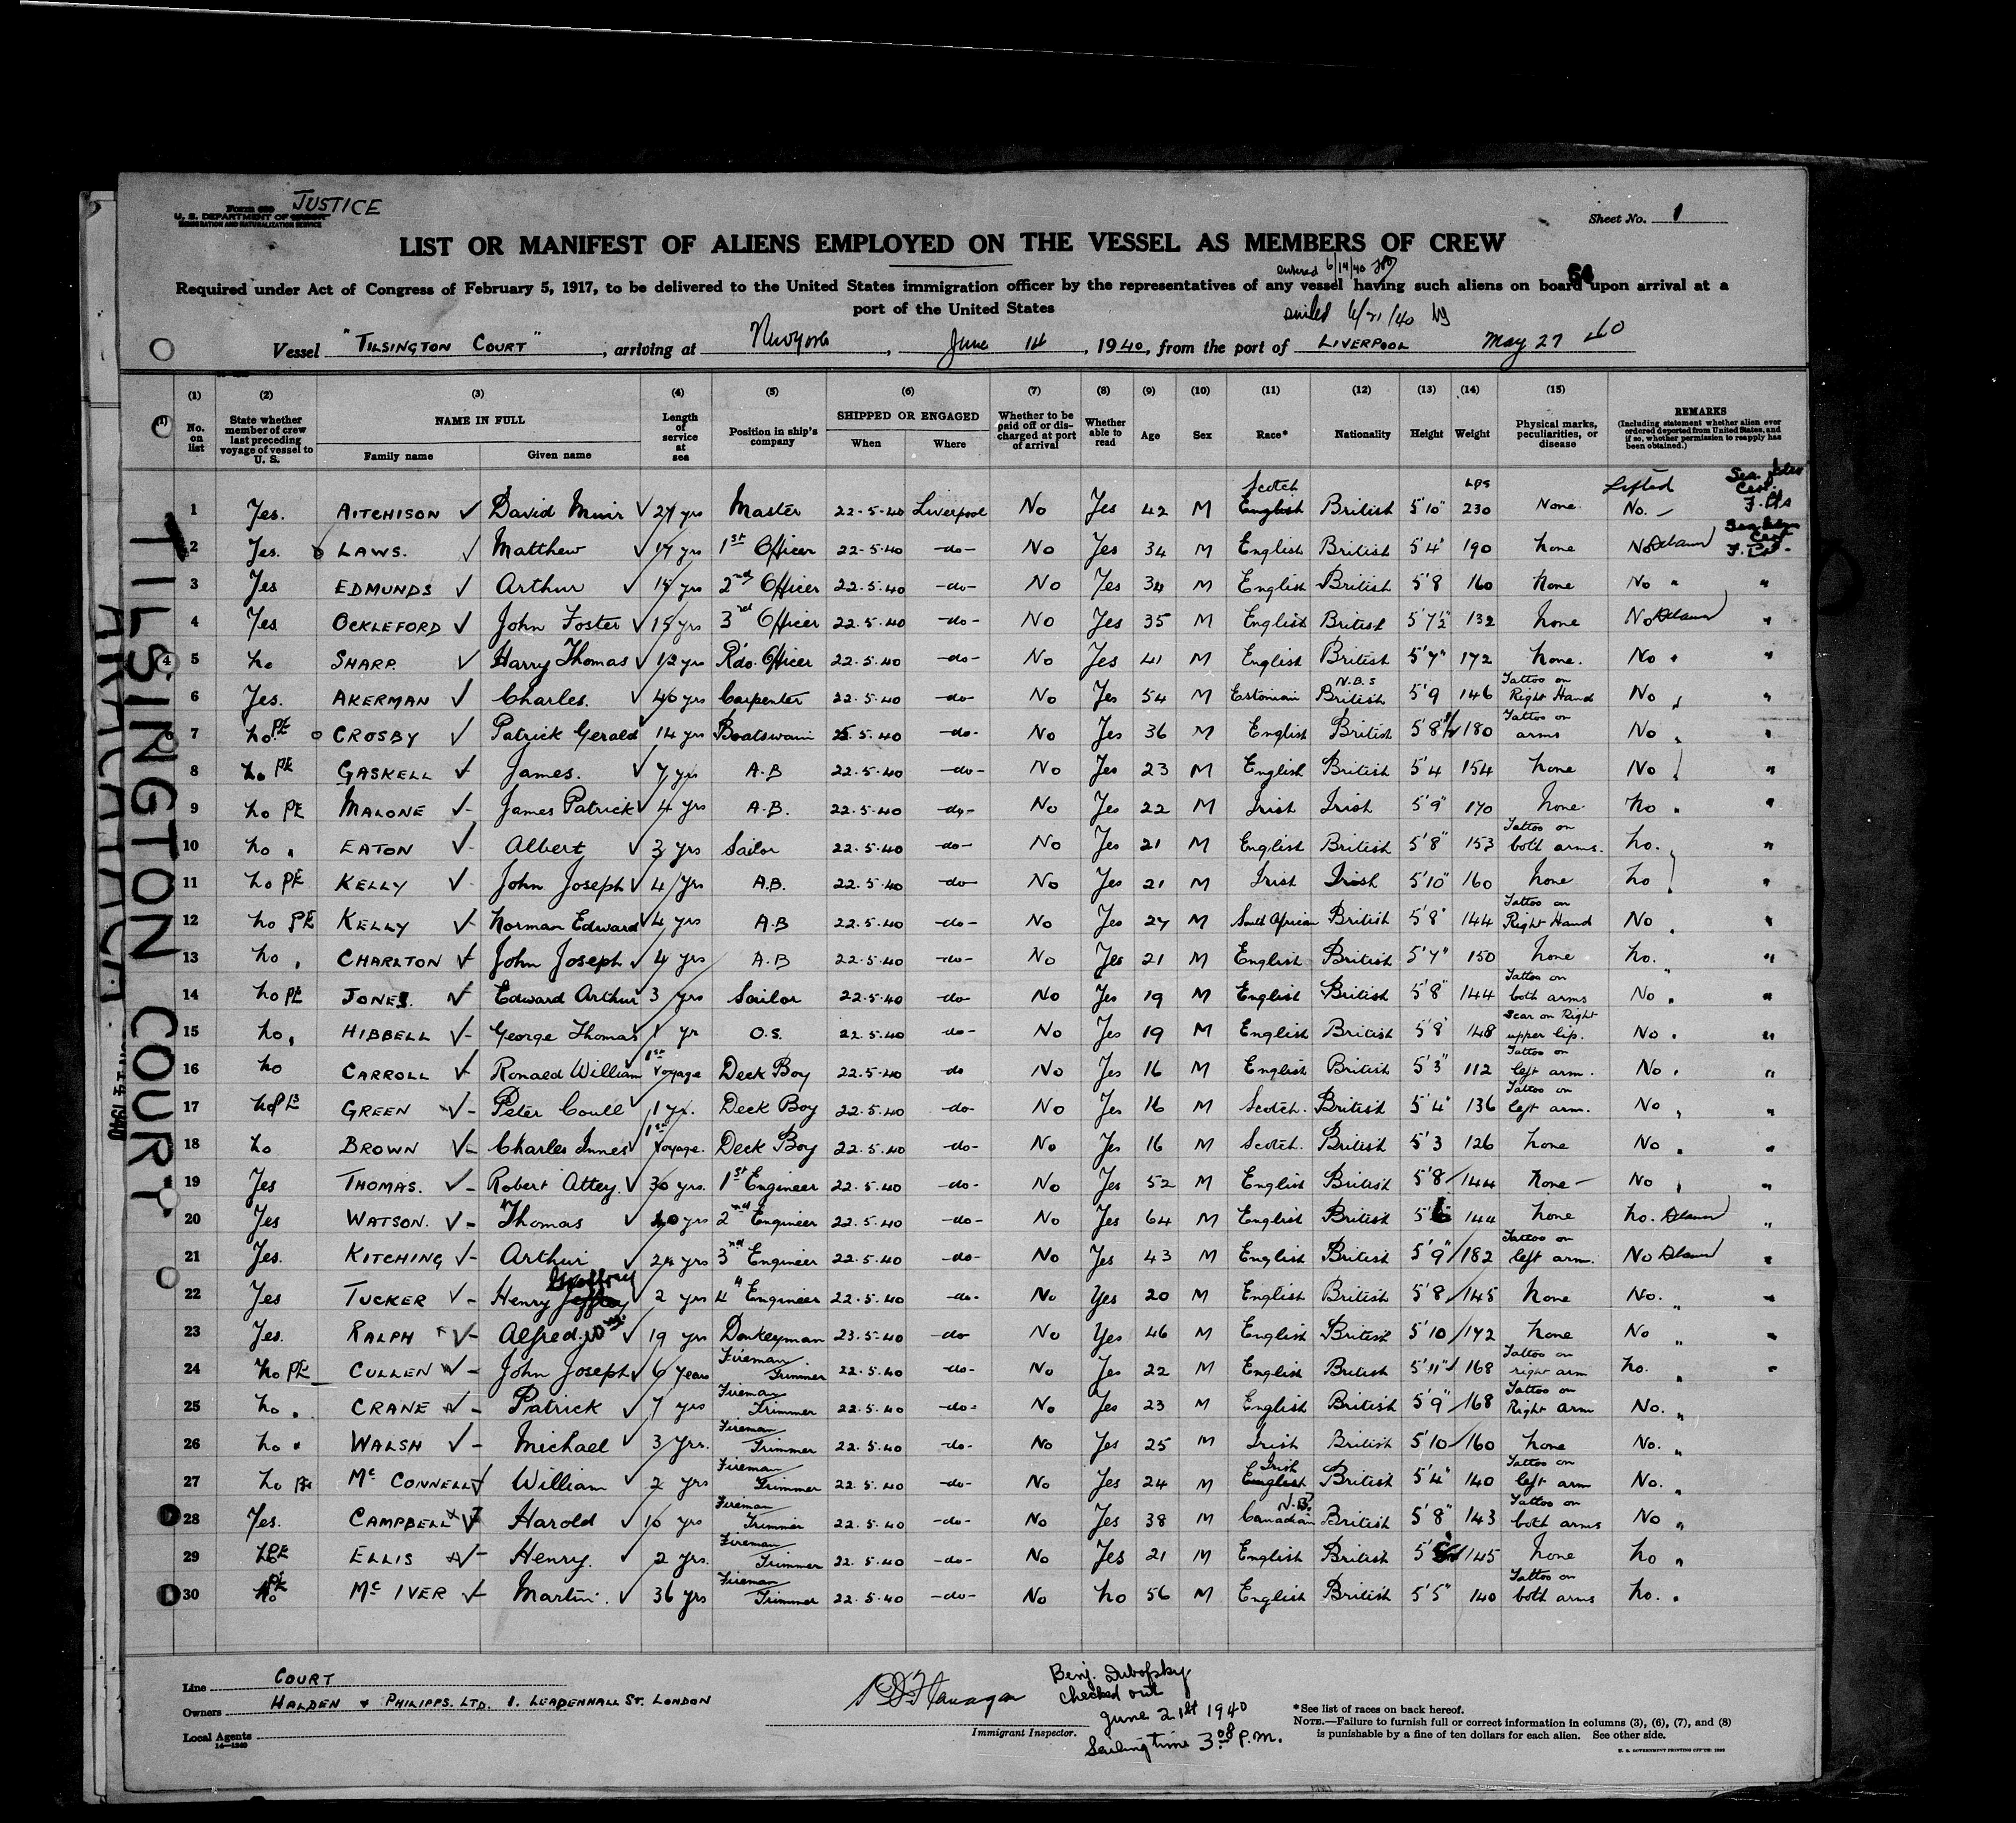 JUSTICE
U. S. DEPARTMENT OF LABOR
IMMIGRATION AND NATURALIZATION SERVICE
Sheet No. 1
LIST OR MANIFEST OF ALIENS EMPLOYED ON THE VESSEL AS MEMBERS OF CREW
entered 6/14/40
Required under Act of Congress of February 5, 1917, to be delivered to the United States immigration officer by the representatives of any vessel having such aliens on board upon arrival at a
port of the United States
sailed 6/21/40
Vessel "TILSINGTON COURT", arriving at New York, June 14, 1940, from the port of LIVERPOOL May 27 40
(1) (2) (3) (4) (5) (6) (7) (8) (9) (10) (11) (12) (13) (14) (15)
No. on list State whether member of crew last preceding voyage of vessel to U. S. NAME IN FULL Family name Given name Length of service at sea Position in ship's company SHIPPED OR ENGAGED When Where Whether to be paid off or discharged at port of arrival Whether able to read Age Sex Race* Nationality Height Weight Physical marks, peculiarities, or disease REMARKS (Including statement whether alien ever ordered deported from United States, and if so, whether permission to reapply has been obtained.)
Scotch Lbs Lifted
1 Yes. AITCHISON David Muir 27 yrs Master 22-5-40 Liverpool No Yes 42 M English British 5'10" 230 None No. -
2 Yes. LAWS. Matthew 17 yrs 1st Officer 22-5-40 -do- No Yes 34 M English British 5'4" 190 None No
3 Yes EDMUNDS Arthur 15 yrs 2nd Officer 22.5.40 -do- No Yes 34 M English British 5'8 160 None No "
4 Yes OCKLEFORD John Foster 15 yrs 3rd Officer 22.5.40 -do- No Yes 35 M English British 5'7½ 132 None No "
5 No SHARP. Harry Thomas 1/2 yrs Rdo. Officer 22.5.40 -do- No Yes 41 M English British 5'7" 172 None. No "
6 Yes. AKERMAN Charles. 40 yrs Carpenter 22.5.40 -do- No Yes 54 M Estonian N.B.S British 5'9 146 Tattoo on Right Hand No "
7 No PE CROSBY Patrick Gerald 14 yrs Boatswain 25.5.40 -do- No Yes 36 M English British 5'8½ 180 Tattoo on arms No "
8 No PE GASKELL James. 7 yrs A.B 22.5.40 -do- No Yes 23 M English British 5'4 154 None No "
9 No PE MALONE James Patrick 4 yrs A.B. 22.5.40 -do- No Yes 22 M Irish Irish 5'9" 170 None. No "
10 No " EATON Albert 3 yrs Sailor 22.5.40 -do- No Yes 21 M English British 5'8" 153 Tattoo on both arms. No. "
11 No PE KELLY John Joseph 4 yrs A.B. 22.5.40 -do- No Yes 21 M Irish Irish 5'10" 160 None No "
12 No PE KELLY Norman Edward 4 yrs A.B 22.5.40 -do- No Yes 27 M South African British 5'8" 144 Tattoo on Right Hand No "
13 No " CHARLTON John Joseph 4 yrs A.B 22.5.40 -do- No Yes 21 M English British 5'7" 150 None No. "
14 No PE JONES. Edward Arthur 3 yrs Sailor 22.5.40 -do- No Yes 19 M English British 5'8" 144 Tattoo on both arms No "
15 No " HIBBELL George Thomas 1 yr O.S. 22.5.40 -do- No Yes 19 M English British 5'8 148 Scar on Right upper lip. No "
16 No CARROLL Ronald William 1st Voyage Deck Boy 22.5.40 -do No Yes 16 M English British 5'3" 112 Tattoo on left arm. No "
17 No PE GREEN Peter Coull 1 yr. Deck Boy 22.5.40 -do- No Yes 16 M Scotch. British 5'4" 136 Tattoo on left arm. No "
18 No BROWN Charles Innes 1st Voyage. Deck Boy 22.5.40 -do- No Yes 16 M Scotch. British 5'3 126 None No "
19 Yes THOMAS. Robert Attey. 30 yrs. 1st Engineer 22.5.40 -do- No Yes 52 M English British 5'8 144 None - No "
20 Yes WATSON. Thomas 40 yrs 2nd Engineer 22.5.40 -do- No Yes 64 M English British 5'6 144 None No. "
21 Yes. KITCHING Arthur 24 yrs 3rd Engineer 22.5.40 -do- No Yes 43 M English British 5'9" 182 Tattoo on left arm. No "
22 Yes TUCKER Henry Jeffrey Geoffrey 2 yrs 4" Engineer 22.5.40 -do- No Yes 20 M English British 5'8 145 None No. "
23 Yes. RALPH Alfred Wm. 19 yrs Donkeyman 23.5.40 -do- No Yes 46 M English British 5'10 172 None No "
24 No PE CULLEN John Joseph 6 years Fireman Trimmer 22.5.40 -do- No Yes 22 M English British 5'11" 168 Tattoo on right arm No. "
25 No " CRANE Patrick 7 yrs Fireman Trimmer 22.5.40 -do- No Yes 23 M English British 5'9" 168 Tattoo on Right arm No. "
26 No " WALSH Michael 3 yrs. Fireman Trimmer 22.5.40 -do- No Yes 25 M Irish British 5'10 160 None No. "
27 No PE McCONNELL William 2 yrs Fireman Trimmer 22.5.40 -do- No Yes 24 M Irish English British 5'4" 140 Tattoo on left arm No. "
28 Yes. CAMPBELL Harold 10 yrs Fireman Trimmer 22.5.40 -do- No Yes 38 M N.B. Canadian British 5'8" 143 Tattoo on both arms No "
29 No PE ELLIS Henry. 2 yrs. Fireman Trimmer 22.5.40 -do- No Yes 21 M English British 145 None No "
30 No PE McIVER Martin. 36 yrs Fireman Trimmer 22.5.40 -do- No No 56 M English British 5'5" 140 Tattoo on both arms No. "
TILSINGTON COURT
Line COURT
Owners HALDEN & PHILIPPS. LTD. 1. LEADENHALL ST. LONDON
Local Agents
14-1240
Immigrant Inspector.
Benj. Dubofsky
checked out
June 21st 1940
Sailing time 3:00 P.M.
*See list of races on back hereof.
NOTE.—Failure to furnish full or correct information in columns (3), (6), (7), and (8)
is punishable by a fine of ten dollars for each alien. See other side.